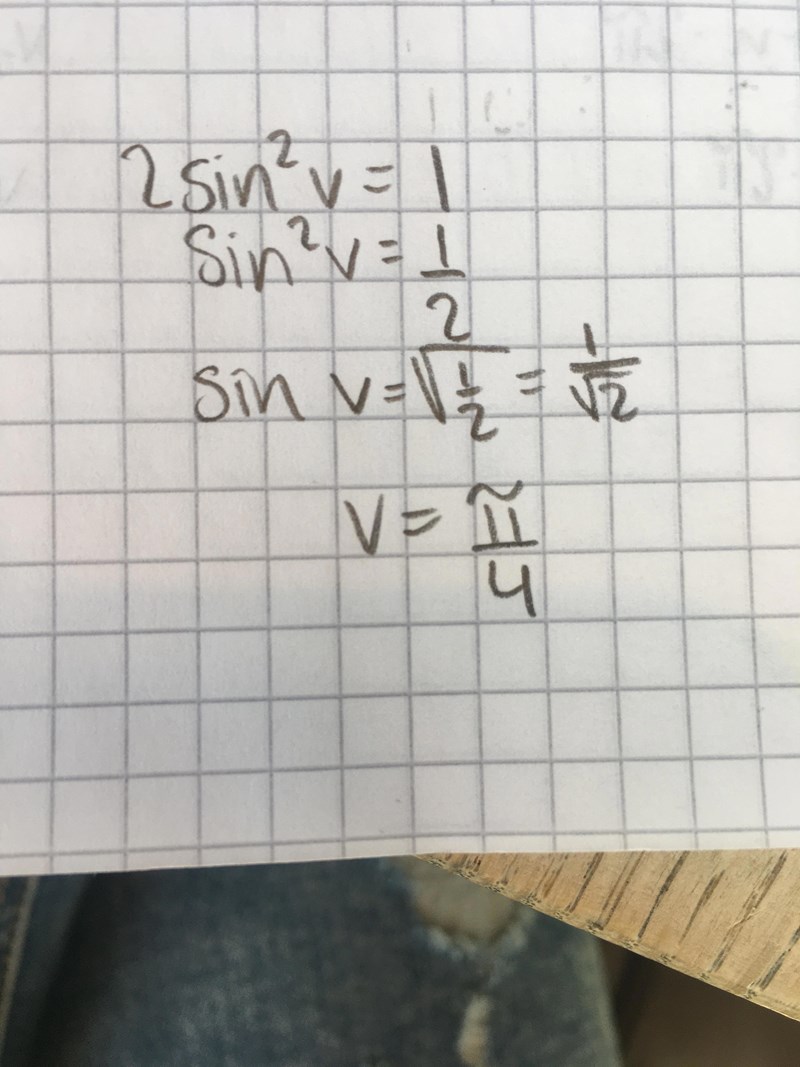 2 sin² v = 1
sin² v = 1/2
sin v = √(1/2) = 1/√2
v = π/4